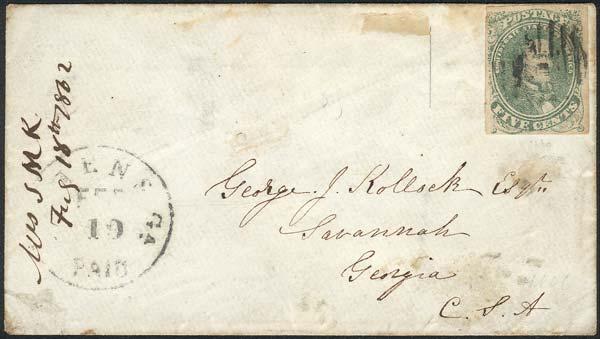 POSTAGE
FIVE CENTS
Mrs S M K
18th 1862
ENS GA
19
PAID
George J. Kollock Esqr
Savannah
Georgia
C. S. A